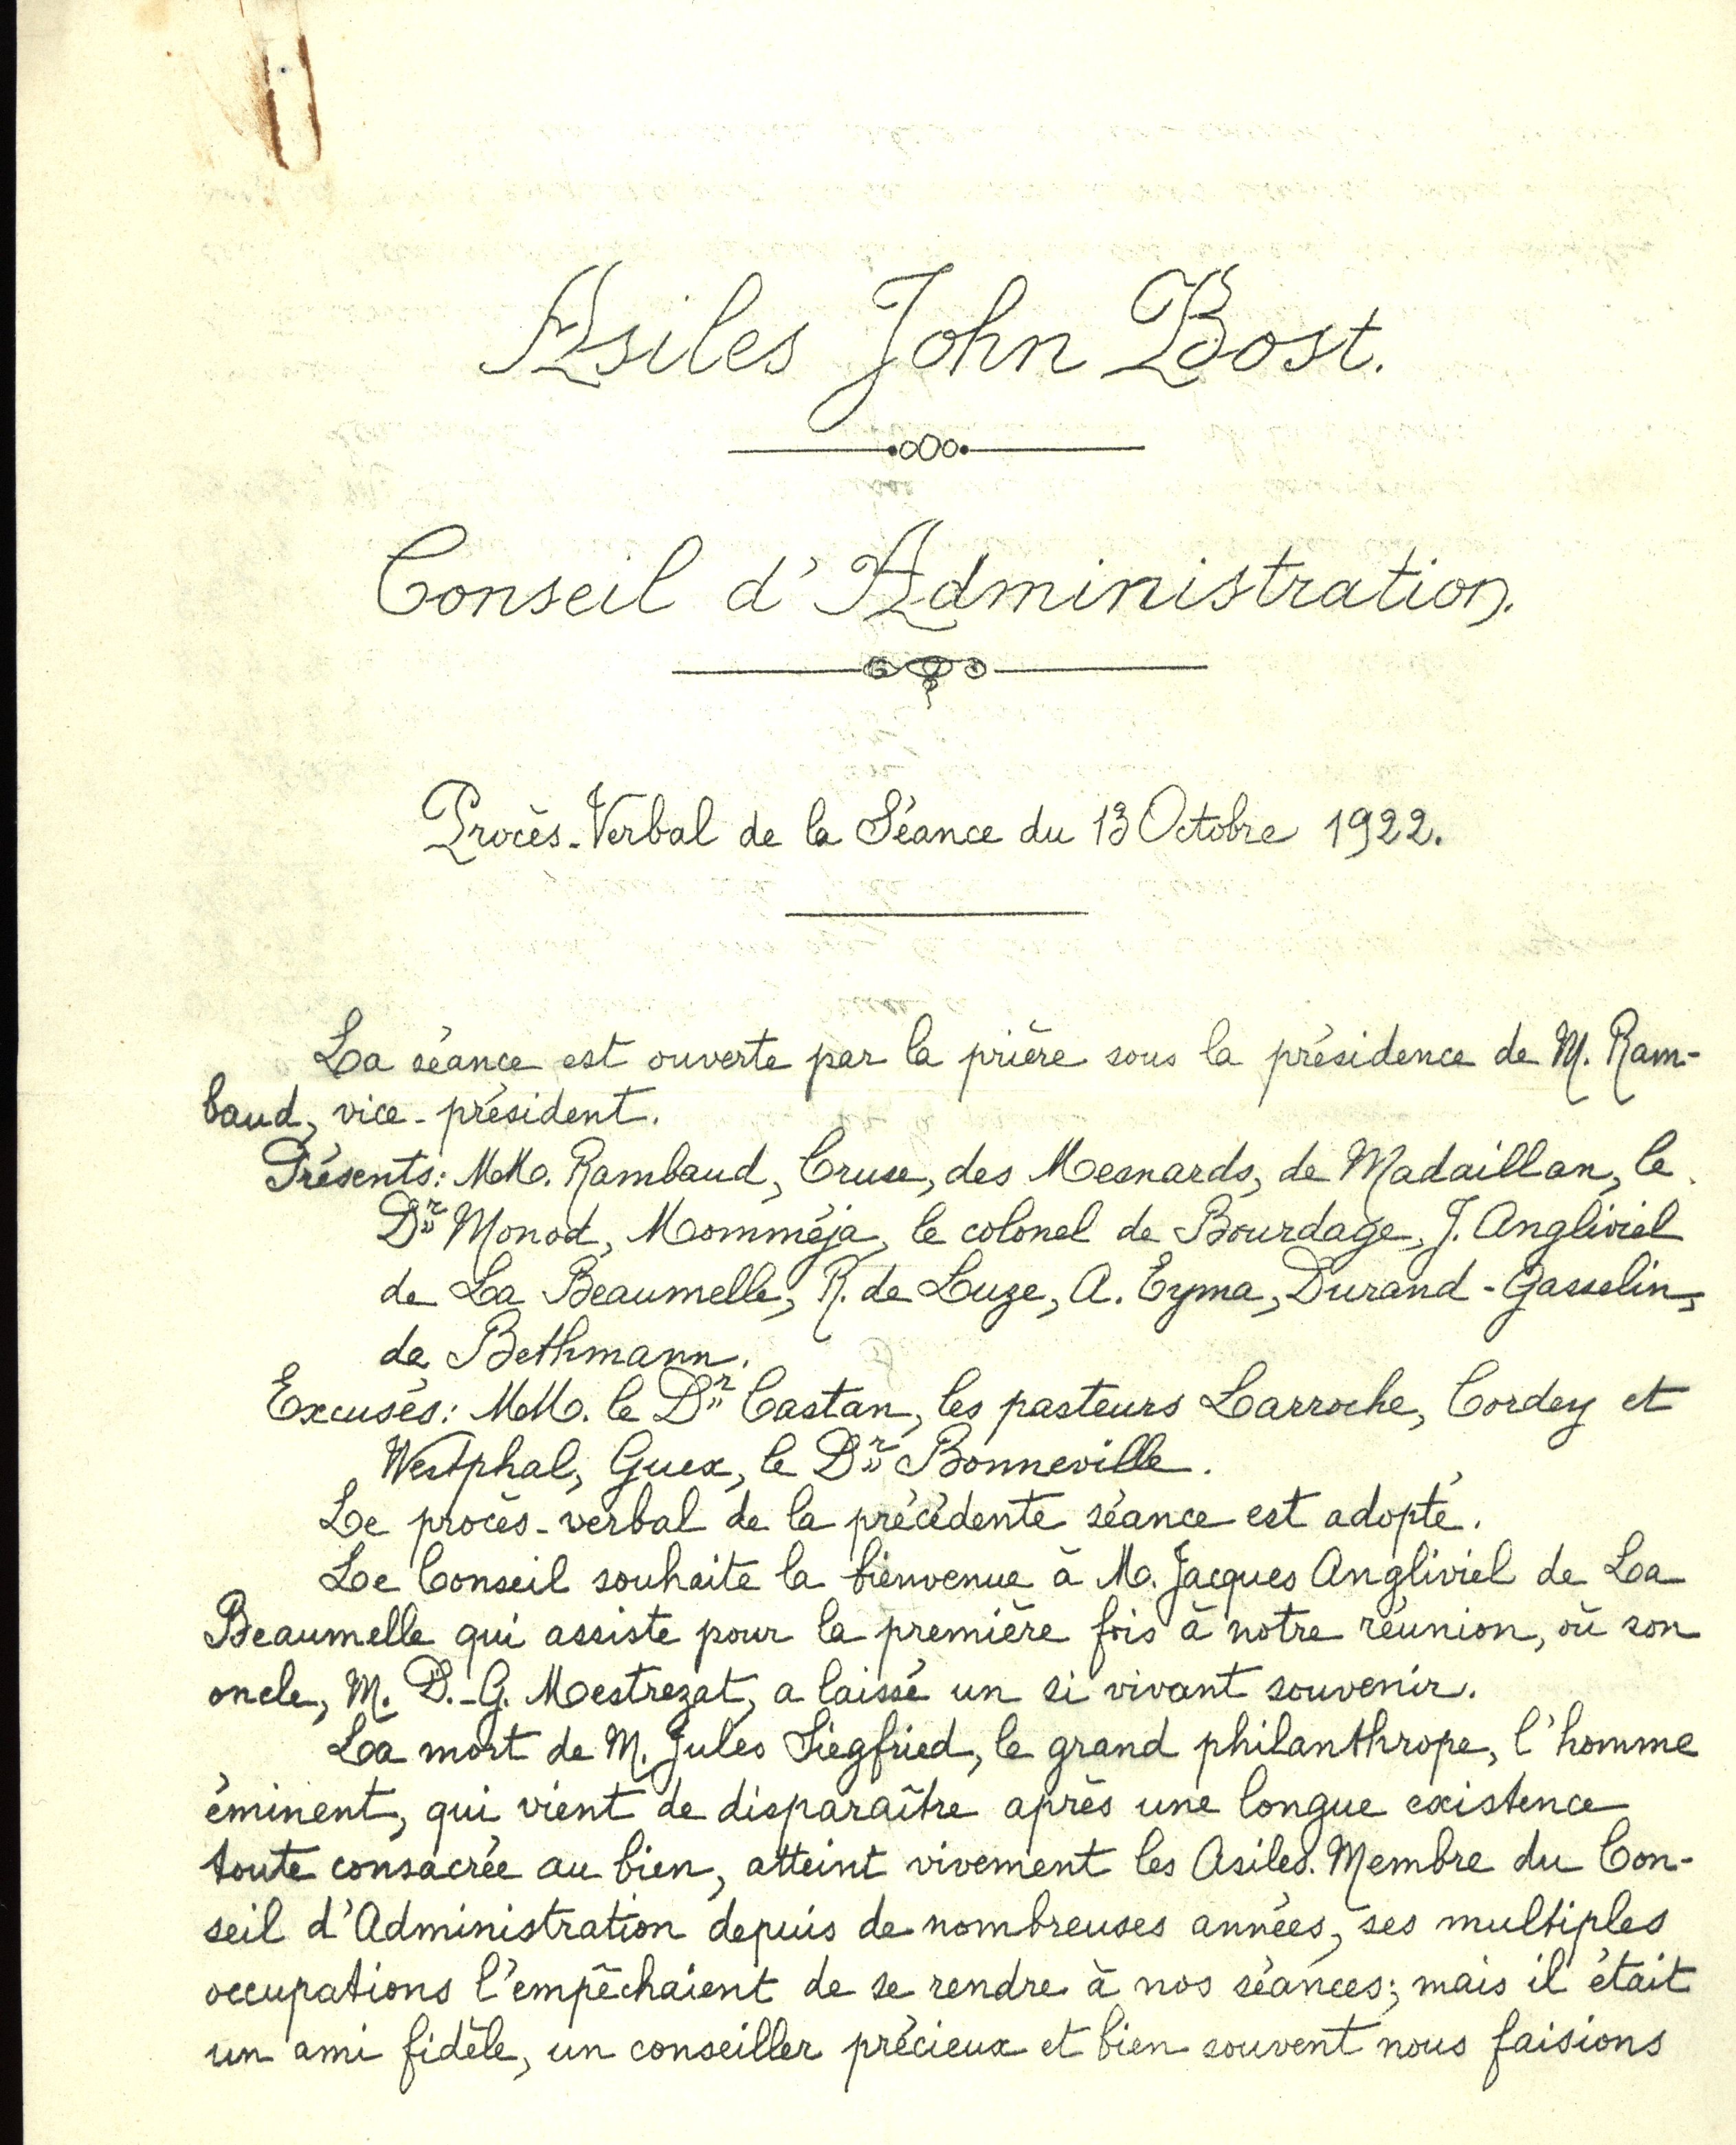 Asiles John Bost.
Conseil d'Administration.
Procès-Verbal de la Séance du 13 Octobre 1922.
La séance est ouverte par la prière sous la présidence de M. Ram-
baud, vice-président.
Présents: MM. Rambaud, Cruse, des Mesnards, de Madaillan, le
Dr Monod, Momméja, le colonel de Bourdage, J. Angliviel
de La Beaumelle, R. de Luze, A. Eyma, Durand-Gasselin,
de Bethmann.
Excusés: MM. le Dr Castan, les pasteurs Larroche, Cordey et
Westphal, Guex, le Dr Bonneville.
Le procès-verbal de la précédente séance est adopté.
Le Conseil souhaite la bienvenue à M. Jacques Angliviel de La
Beaumelle qui assiste pour la première fois à notre réunion, où son
oncle, M. D.-G. Mestrezat, a laissé un si vivant souvenir.
La mort de M. Jules Siegfried, le grand philanthrope, l'homme
éminent, qui vient de disparaître après une longue existence
toute consacrée au bien, atteint vivement les Asiles. Membre du Con-
seil d'Administration depuis de nombreuses années, ses multiples
occupations l'empêchaient de se rendre à nos séances; mais il était
un ami fidèle, un conseiller précieux et bien souvent nous faisions